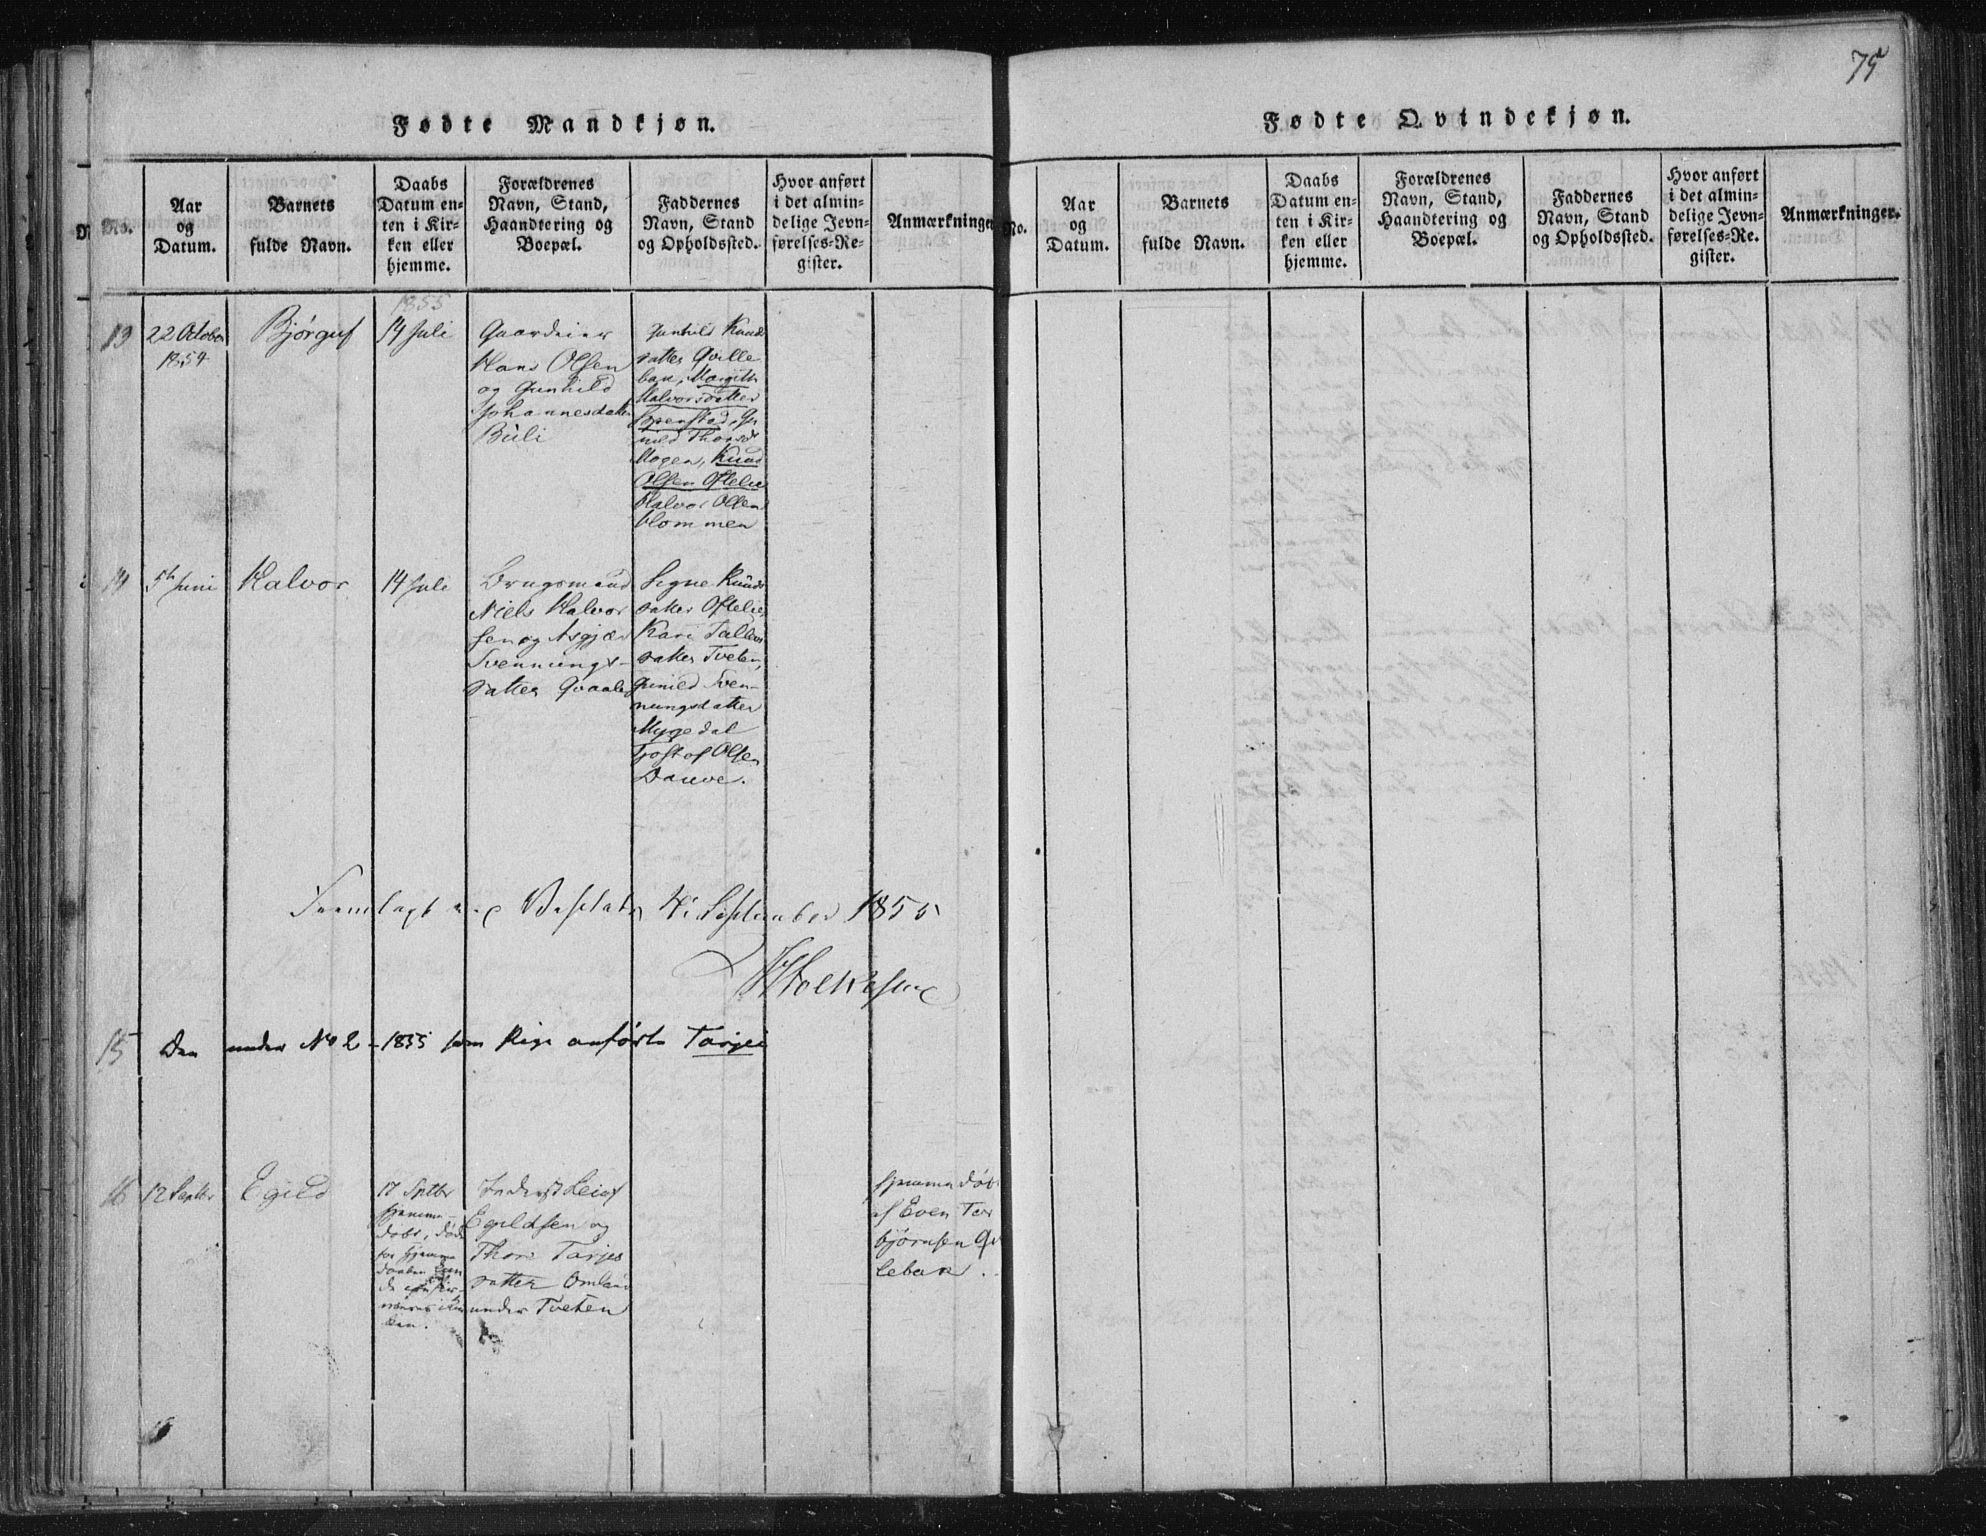 75
Fødte Mandkjøn.
No.
Aar
og
Datum.
Barnets
fulde Navn.
Daabs
Datum en-
ten i Kir-
ken eller
hjemme.
Forældrenes
Navn, Stand,
Haandtering og
Boepæl.
Faddernes
Navn, Stand
og Opholdssted.
Hvor anført
i det almin-
delige Jevn-
førelses-Re-
gister.
Anmærkninger
13
22 October
1854
Bjørguf
1855
14 Juli
Gaardeier
Hans Olsen
og Gunhild
Johannesdatter
Buli
Gunhild Knuds
datter Qville
bak, Margith
Halvorsdatter
Gunild Thorsdr
Mogen, Knud
Olsen Oftelie
Halvor Olsen
Blommen
14
5te Juni
Halvor
14 Juli
Brugsmand
Niels Halvor
sen og Asgjær
Svennungs-
datter Qvaale
Signe Knuds
datter Oftelie,
Kari Tallevs
datter Tveten,
Gunild Sven-
nungsdatter
Mygedal
Tjostof Olsen
Dauve.
Fremlagt Visitats 4de September 1855
15
Den under No 2 - 1855 som Pige anførte Tarjei
16
12 Septbr
Egild
17 Septbr
hjemme-
døbt, død
før hjemme
daaben kun
Inderst Leif
Egildsen og
Thore Tarjes
datter Omland
under Tveten
hjemmedøbt
af Even Tor
bjørnsen Qvi
lebak.
Fødte Qvindekjøn.
No.
Aar
og
Datum.
Barnets
fulde Navn.
Daabs
Datum en-
ten i Kir-
ken eller
hjemme.
Forældrenes
Navn, Stand,
Haandtering og
Boepæl.
Faddernes
Navn, Stand
og Opholdssted.
Hvor anført
i det almin-
delige Jevn-
førelses-Re-
gister.
Anmærkninger.